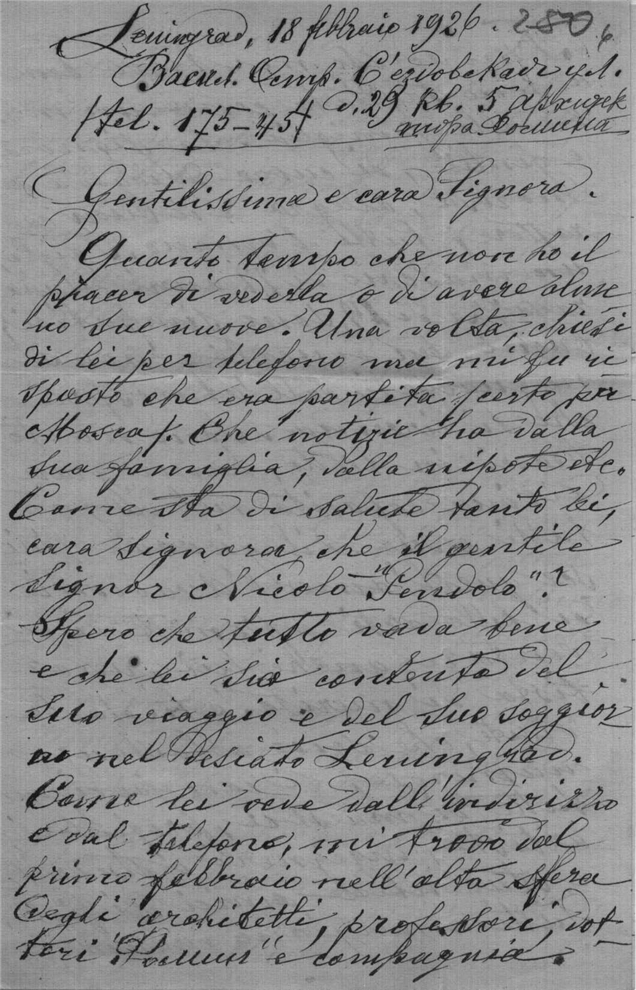 Leningrad, 18 febbraio 1926. 280
6
Васил. Остр. Съездовская ул.
/tel. 175-45/ д. 29 кв. 5 архитек
тора Фомина
Gentilissima e cara Signora.
Quanto tempo che non ho il
piacer di vederla o di avere alme
no sue nuove. Una volta, chiesi
di lei per telefono ma mi fu ri
sposto che era partita /certo per
Mosca/. Che notizie ha dalla
sua famiglia, dalla nipote etc.
Come sta di salute tanto lei,
cara signora, che il gentile
signor Nicolò "Pendolo"?
Spero che tutto vada bene
e che lei sia contenta del
suo viaggio e del suo soggior
no nel desiato Leningrad.
Come lei vede dall'indirizzo
e dal telefono, mi trovo dal
primo febbraio nell'alta sfera
degli architetti, professori, dot-
tori "Фомин" e compagnia.